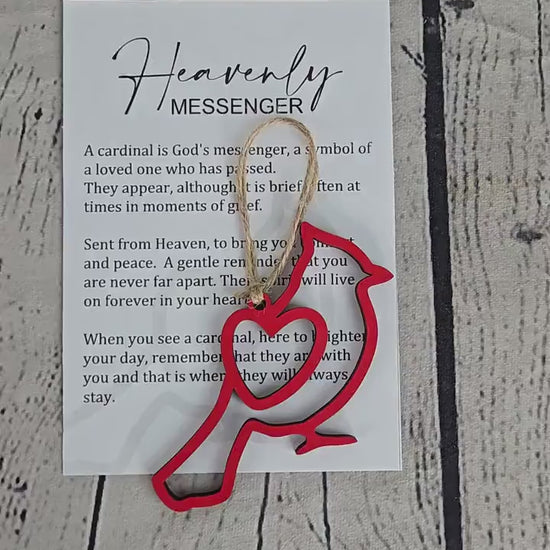 Heavenly
MESSENGER
A cardinal is God's messenger, a symbol of
a loved one who has passed.
They appear, although it is brief often at
times in moments of grief.
Sent from Heaven, to bring you comfort
and peace. A gentle reminder that you
are never far apart. Their spirit will live
on forever in your heart.
When you see a cardinal, here to brighten
your day, remember that they are with
you and that is where they will always
stay.